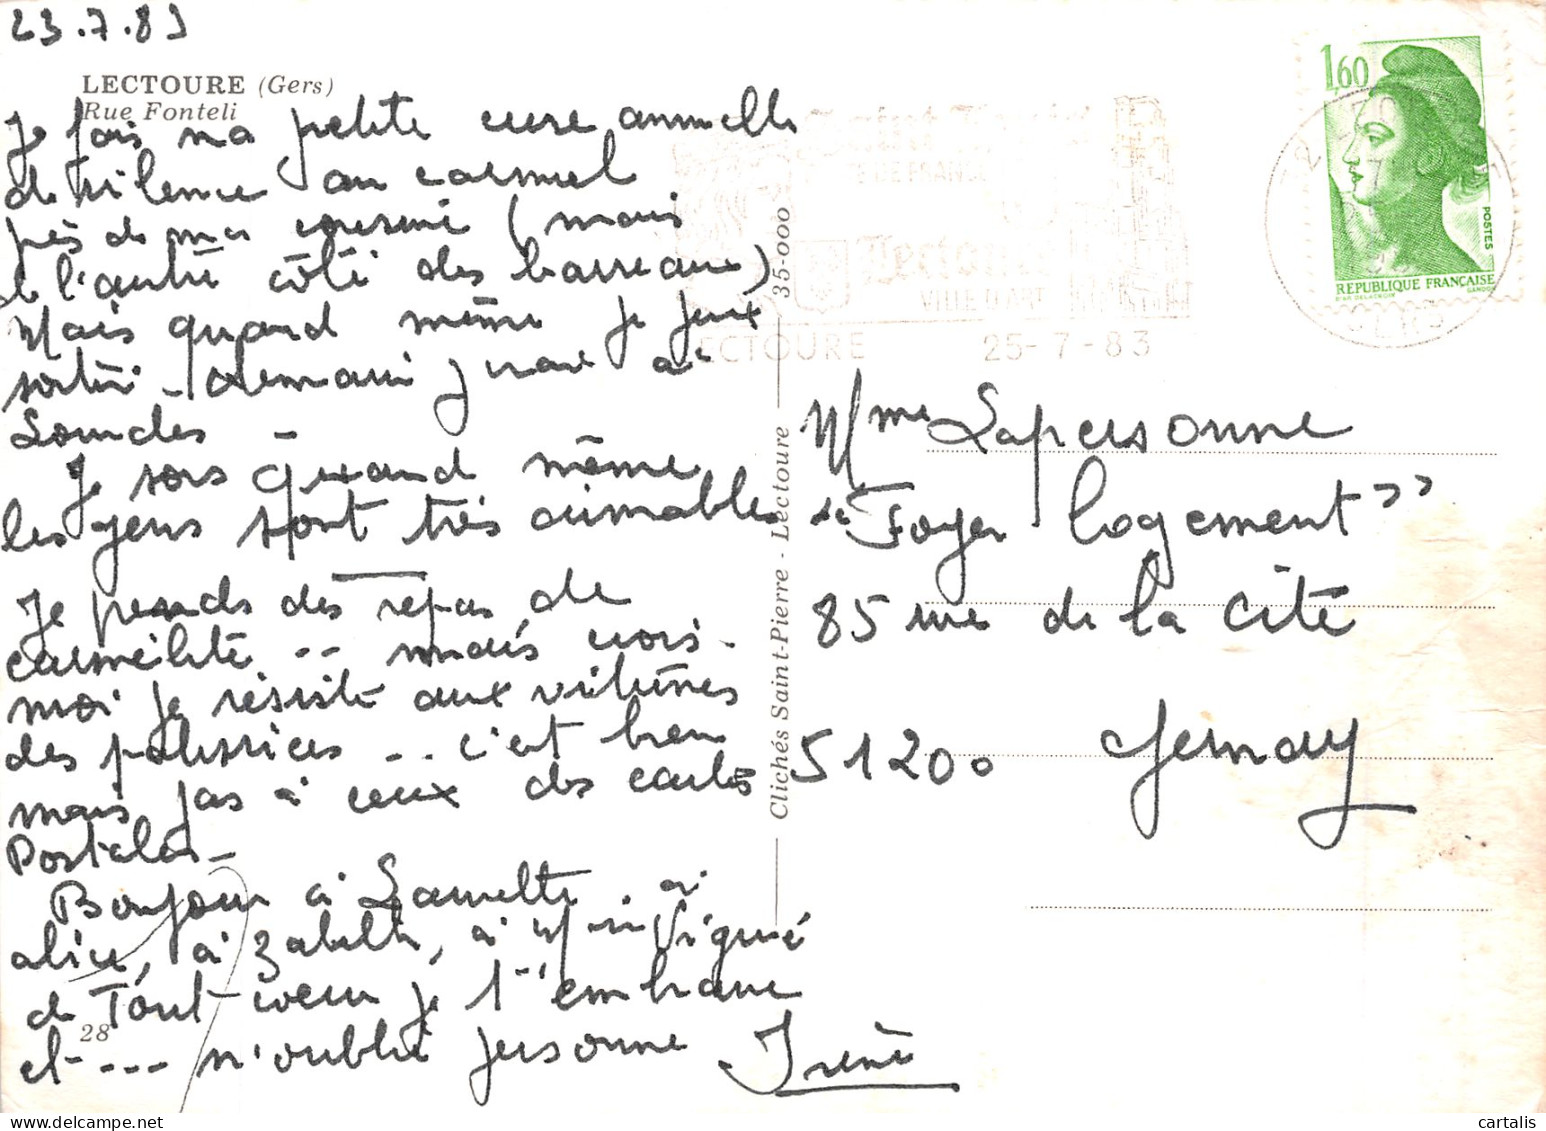 23.7.83
LECTOURE (Gers)
Rue Fonteli
Je fais ma petite cure annuelle
de silence au carmel
près de ma cousine (mais
de l'autre côté des barreaux)
Mais quand même je peux
sortir - demain j'irai à
Lourdes -
Je sors quand même
les gens sont très aimables
Je prends des repas de
carmélite -- mais
moi je résiste aux vitrines
des patissries -- c'est bien
mais pas à ceux des cartes
Postales -
Bonjour à à
alice, à Zabelle, à
de Tout coeur je t'embrasse
et --- n'oublie personne Irène
28
Clichés Saint-Pierre - Lectoure
35-000
LECTOURE
25-7-83
E DE FRANCE
Lectoure
VILLE D'ART
1,60
POSTES
REPUBLIQUE FRANÇAISE
D'AP. DELACROIX
GANDON
Mme Lapersonne
"Foyer logement"
85 rue de la Cité
51200 Epernay
cartalis